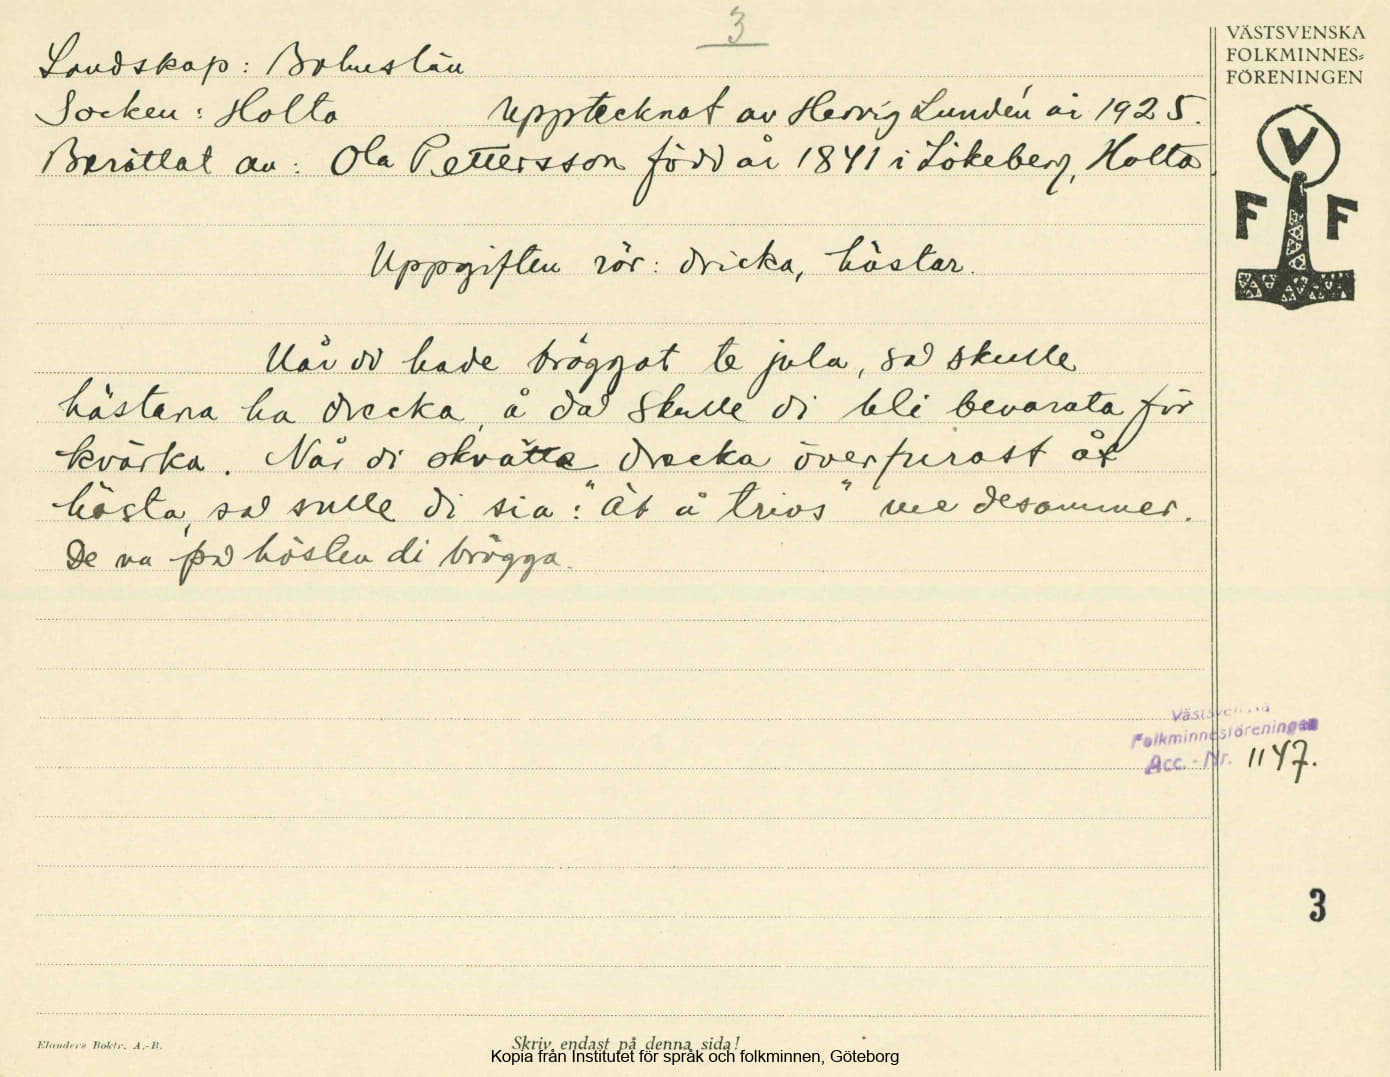 3
VÄSTSVENSKA
FOLKMINNES=
FÖRENINGEN
V
F F
Landskap: Bohuslän
Socken: Holta Upptecknat av Hervig Lundén år 1925.
Berättat av: Ola Pettersson född år 1841 i Lökeberg, Holta
Uppgiften rör: dricka, hästar.
Når di hade bröggat te jula, så skulle
hästana ha drecka, å då skulle di bli bevarata för
kvärka. Når di skvätte drecka överfurast åt
hästa, så sulle di sia: "Ät å trivs" me desammer.
De va på hösten di brögga.
Västsvenska
Folkminnesföreningen
Acc.-Nr. 1147.
3
Elanders Boktr. A.-B.
Skriv endast på denna sida!
Kopia från Institutet för språk och folkminnen, Göteborg